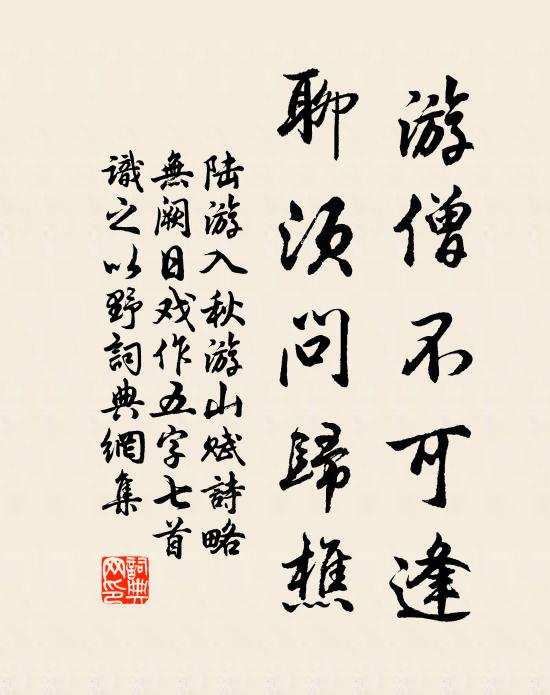 游僧不可逢
聊须问歸樵
陆游入秋游山赋詩略
無阙日戏作五字七首
識之以野詞典網集
詞典网印